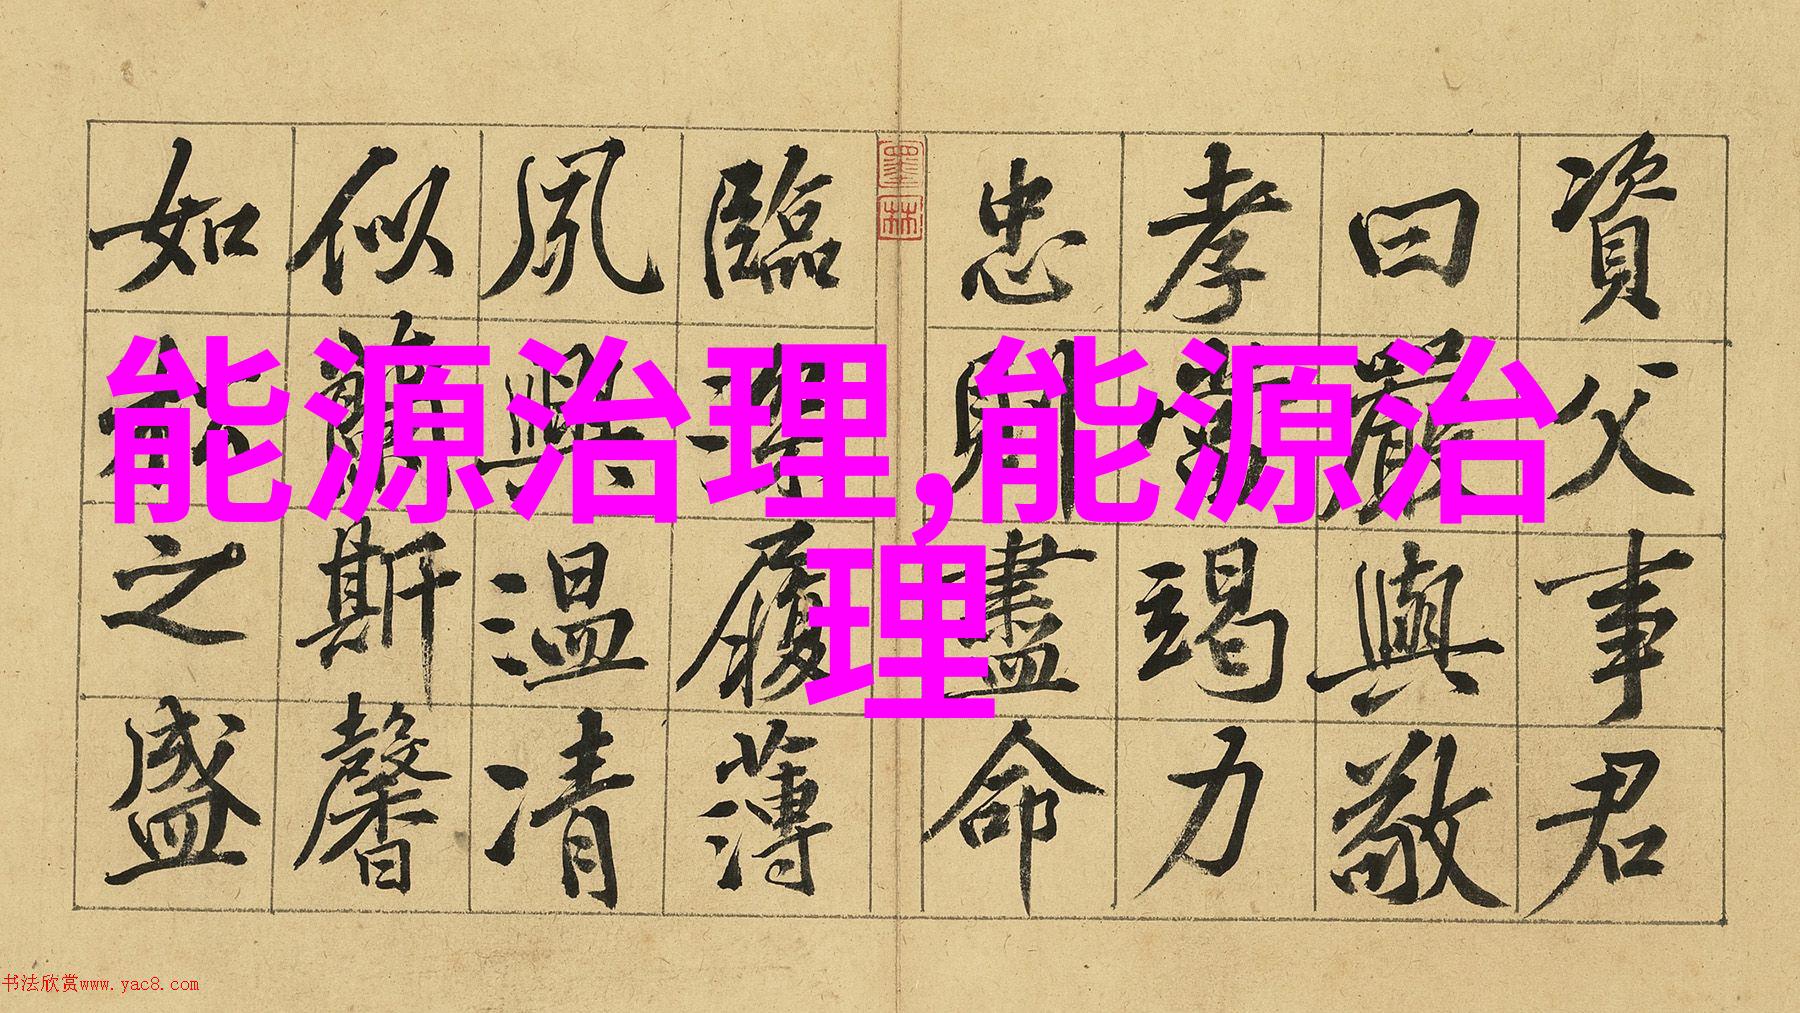 資父事君
曰嚴與敬
孝當竭力
忠則盡命
墨林
臨深履薄
夙興温凊
似蘭斯馨
如松之盛
能源治理,能源治
理
书法欣赏www.yac8.com